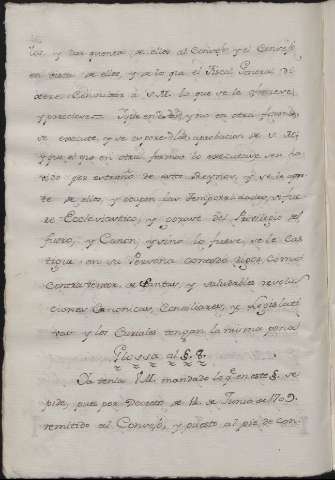 los, y dar quenta de ellos al Consejo, y el Consejo
en vista de ellos, y de lo que el Fiscal General di
xere Consultar à S. M. lo que se le ofreciere,
y pareciere y no en otra forma
se execute, y se espere la aprobacion de S. M.
y que el que en otra forma lo executare sea ha
vido por estraño de estos Reynos, y se le apar
te de ellos, y ocupen las Temporalidades, si fue
re Ecclesiastico, y gozare del Privilegio del
fuero, y Canon, y si no lo fuere, se le cas
tigue en su Persona con todo rigor, Como
Contraventor de Santas, y saludables resolu
ciones Canonicas, Conciliares, y Legislati
vas y los Curiales tengan la misma pena
Glossa al §. 8.
Ya tenia V. M. mandado lo qe en este §. se
pide, pues por Decreto de 12 de Junio de 1709.
remitido al Consejo, y puesto al pie de con-